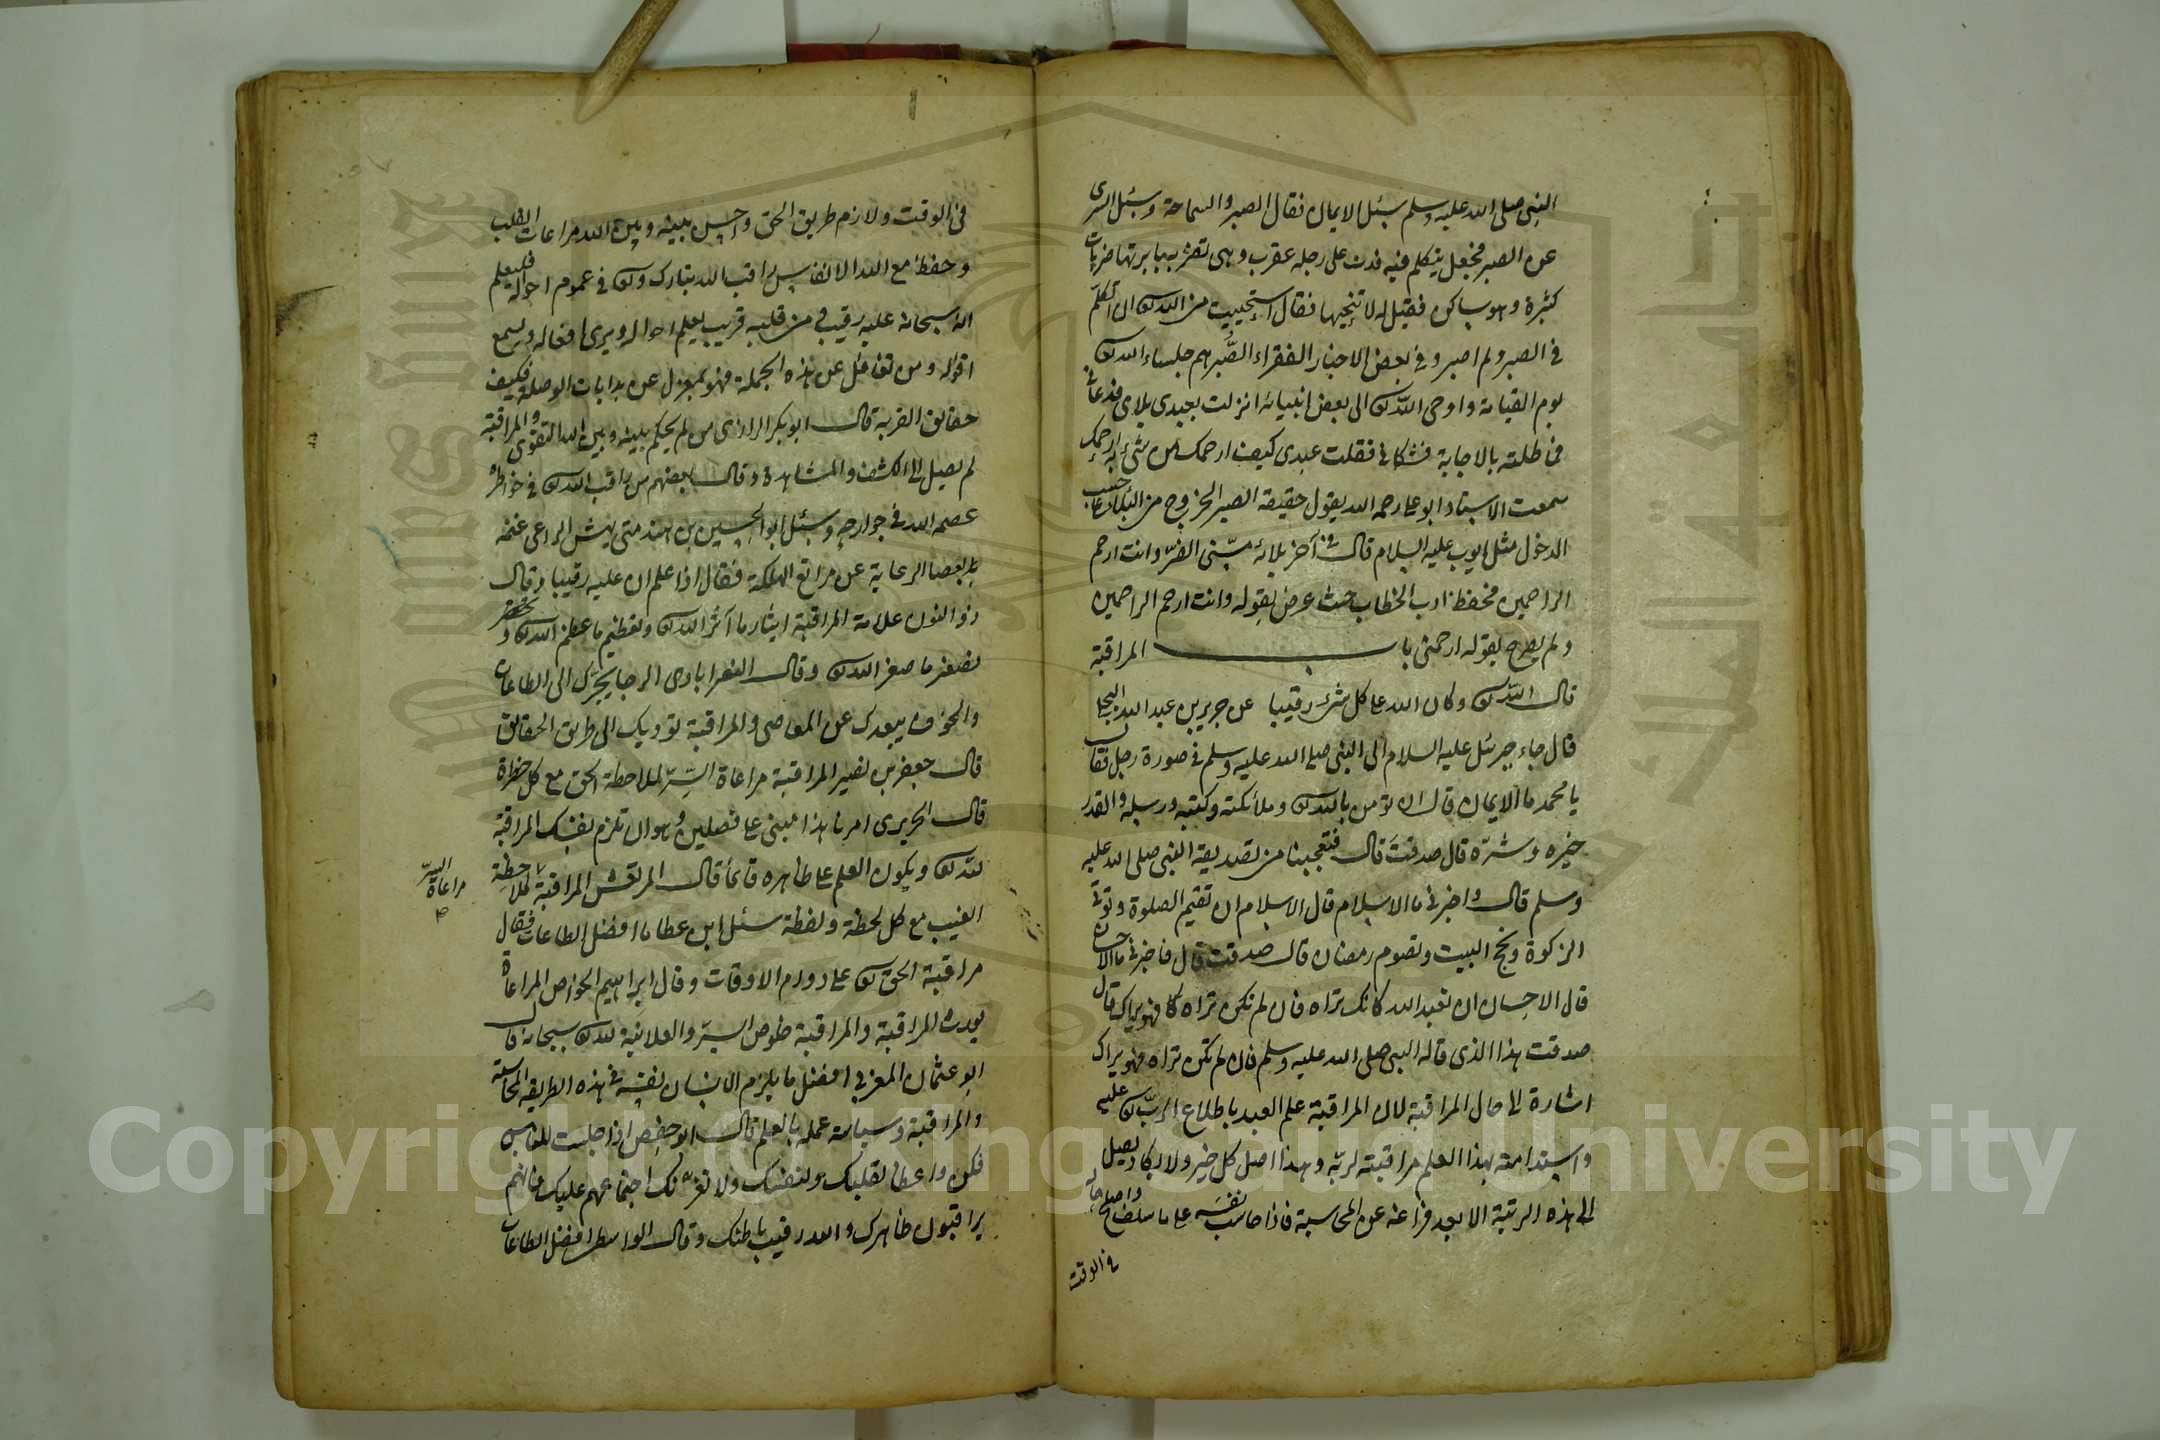 النبي صلى الله عليه وسلم سئل الايمان فقال الصبر والسماحة وسئل السرى
عن الصبر فجعل يتكلم فيه فدبت على رجله عقرب وهي تضربه بابرتها ضربات
كثيرة وهو ساكن فقيل له لا تنحيها فقال استحييت من الله تعالى ان اتكلم
في الصبر ولم اصبر وفي بعض الاخبار الفقراء الصبر هم جلساء الله تعالى
يوم القيامة واوحى الله تعالى الى بعض انبيائه انزلت بعبدى بلاى فدعانى
فماطلته بالاجابة فشكانى فقلت عبدى كيف ارحمك من شئ به ارحمك
سمعت الاستاد ابو على رحمه الله يقول حقيقة الصبر الخروج من البلاء على حسب
الدخول مثل ايوب عليه السلام قال في آخر بلائه مسّنى الضرّ وانت ارحم
الراحمين فحفظ ادب الخطاب حيث عرض بقوله وانت ارحم الراحمين
ولم يصرح بقوله ارحمنى باب المراقبة
قال الله تعالى وكان الله على كل شئ رقيبا عن جرير بن عبد الله البجلى
قال جاء جبرئل عليه السلام الى النبى صلى الله عليه وسلم في صورة رجل فقال
يا محمد ما الايمان قال ان تؤمن بالله تعالى وملائكته وكتبه ورسله والقدر
خيره وشرّه قال صدقت قال فتعجبنا من تصديقه النبى صلى الله عليه
وسلم قال واخبرنى ما الاسلام قال الاسلام ان تقيم الصلوة وتوتى
الزكوة وتحج البيت وتصوم رمضان قال صدقت قال فاخبرنى ما الاحسان
قال الاحسان ان تعبد الله كانك تراه فان لم تكن تراه فهو يراك قال
صدقت هذا الذى قاله النبى صلى الله عليه وسلم فان لم تكن تراه فهو يراك
اشارة الى حال المراقبة لان المراقبة علم العبد باطلاع الربّ تعالى عليه
واستدامته بهذا العلم مراقبته لربّه وهذا اصل كل خير ولا يكاد يصل
الى هذه الرتبة الا بعد فراغه عن المحاسبة فاذا حاسب نفسه على ما سلف واصلح حاله
في الوقت
في الوقت ولازم طريق الحق واحسن بينه وبين الله مراعات القلب
وحفظ مع الله الانفاس راقب الله تبارك وتعالى في عموم احواله فيعلم
انه سبحانه عليه رقيب ومن قلبه قريب يعلم احواله ويرى افعاله ويسمع
اقواله ومن تغافل عن هذه الجملة فهو بمعزل عن بدايات الوصلة فكيف
حقائق القربة قال ابو بكر الرازى من لم يحكم بينه وبين الله التقوى والمراقبة
لم يصل الى الكشف والمشاهدة وقال بعضهم من راقب الله تعالى في خواطره
عصمه الله في جوارحه وسئل ابو الحسين بن هند متى يهش الراعى غنمه
بعصا الرعاية عن مراتع الهلكة فقال اذا علم ان عليه رقيبا وقال
ذو النون علامة المراقبة ايثار ما آثر الله تعالى وتعظيم ما عظم الله تعالى و
تصغير ما صغر الله تعالى وقال النصرابادى الرجا يحرّك الى الطاعات
والخوف يبعدك عن المعاصى والمراقبة تؤديك الى طريق الحقائق
قال جعفر بن نصير المراقبة مراعاة السّرّ لملاحظة الحق مع كل خطرة
قال الجريرى امرنا هذا مبنى على فصلين وهو ان تلزم نفسك المراقبة
لله تعالى ويكون العلم على ظاهره قائما قال المرتعش المراقبة لملاحظة
مراعاة السرّ
الغيب مع كل لحظة ولفظة سئل ابن عطا ما افضل الطاعات فقال
مراقبة الحق تعالى على دوام الاوقات وقال ابراهيم الخواص المراعاة
يورث المراقبة والمراقبة خلوص السرّ والعلانية لله تعالى سبحانه قال
ابو عثمان المغربى افضل ما يلزم الانسان نفسه في هذه الطريقه المحاسبة
والمراقبة وسياسة عمله بالعلم قال ابو حفص اذا جلست للناس
فكن واعظا لقلبك ولنفسك ولا تغرّنك اجتماعهم عليك فانهم
يراقبون ظاهرك والله رقيب باطنك وقال الواسطى افضل الطاعات
Copyright © King Saud University